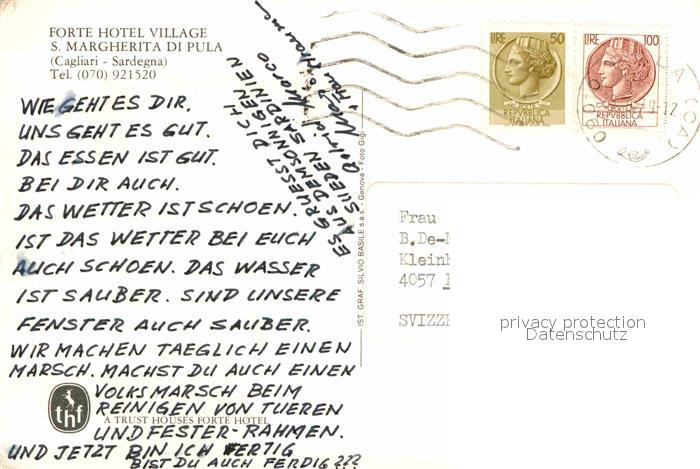 FORTE HOTEL VILLAGE
S. MARGHERITA DI PULA
(Cagliari - Sardegna)
Tel. (070) 921520
WIE GEHT ES DIR.
UNS GEHT ES GUT.
DAS ESSEN IST GUT.
BEI DIR AUCH.
DAS WETTER IST SCHOEN.
IST DAS WETTER BEI EUCH
AUCH SCHOEN. DAS WASSER
IST SAUBER. SIND UNSERE
FENSTER AUCH SAUBER.
WIR MACHEN TAEGLICH EINEN
MARSCH. MACHST DU AUCH EINEN
VOLKSMARSCH BEIM
REINIGEN VON TUEREN
UND FESTER-RAHMEN.
UND JETZT BIN ICH FERTIG
BIST DU AUCH FERDIG ???
thf
A TRUST HOUSES FORTE HOTEL
ES GRUESST DICH
AUS DEM SONNIGEN
SUEDEN SARDINIEN
Marco
IST. GRAF. SILVIO BASILE s.a.s. - Genova - Foto Gigi
LIRE 50
REPVBBLICA
ITALIANA
LIRE 100
REPVBBLICA
ITALIANA
Frau
B.De-
Klein
4057
SVIZZ
privacy protection
Datenschutz